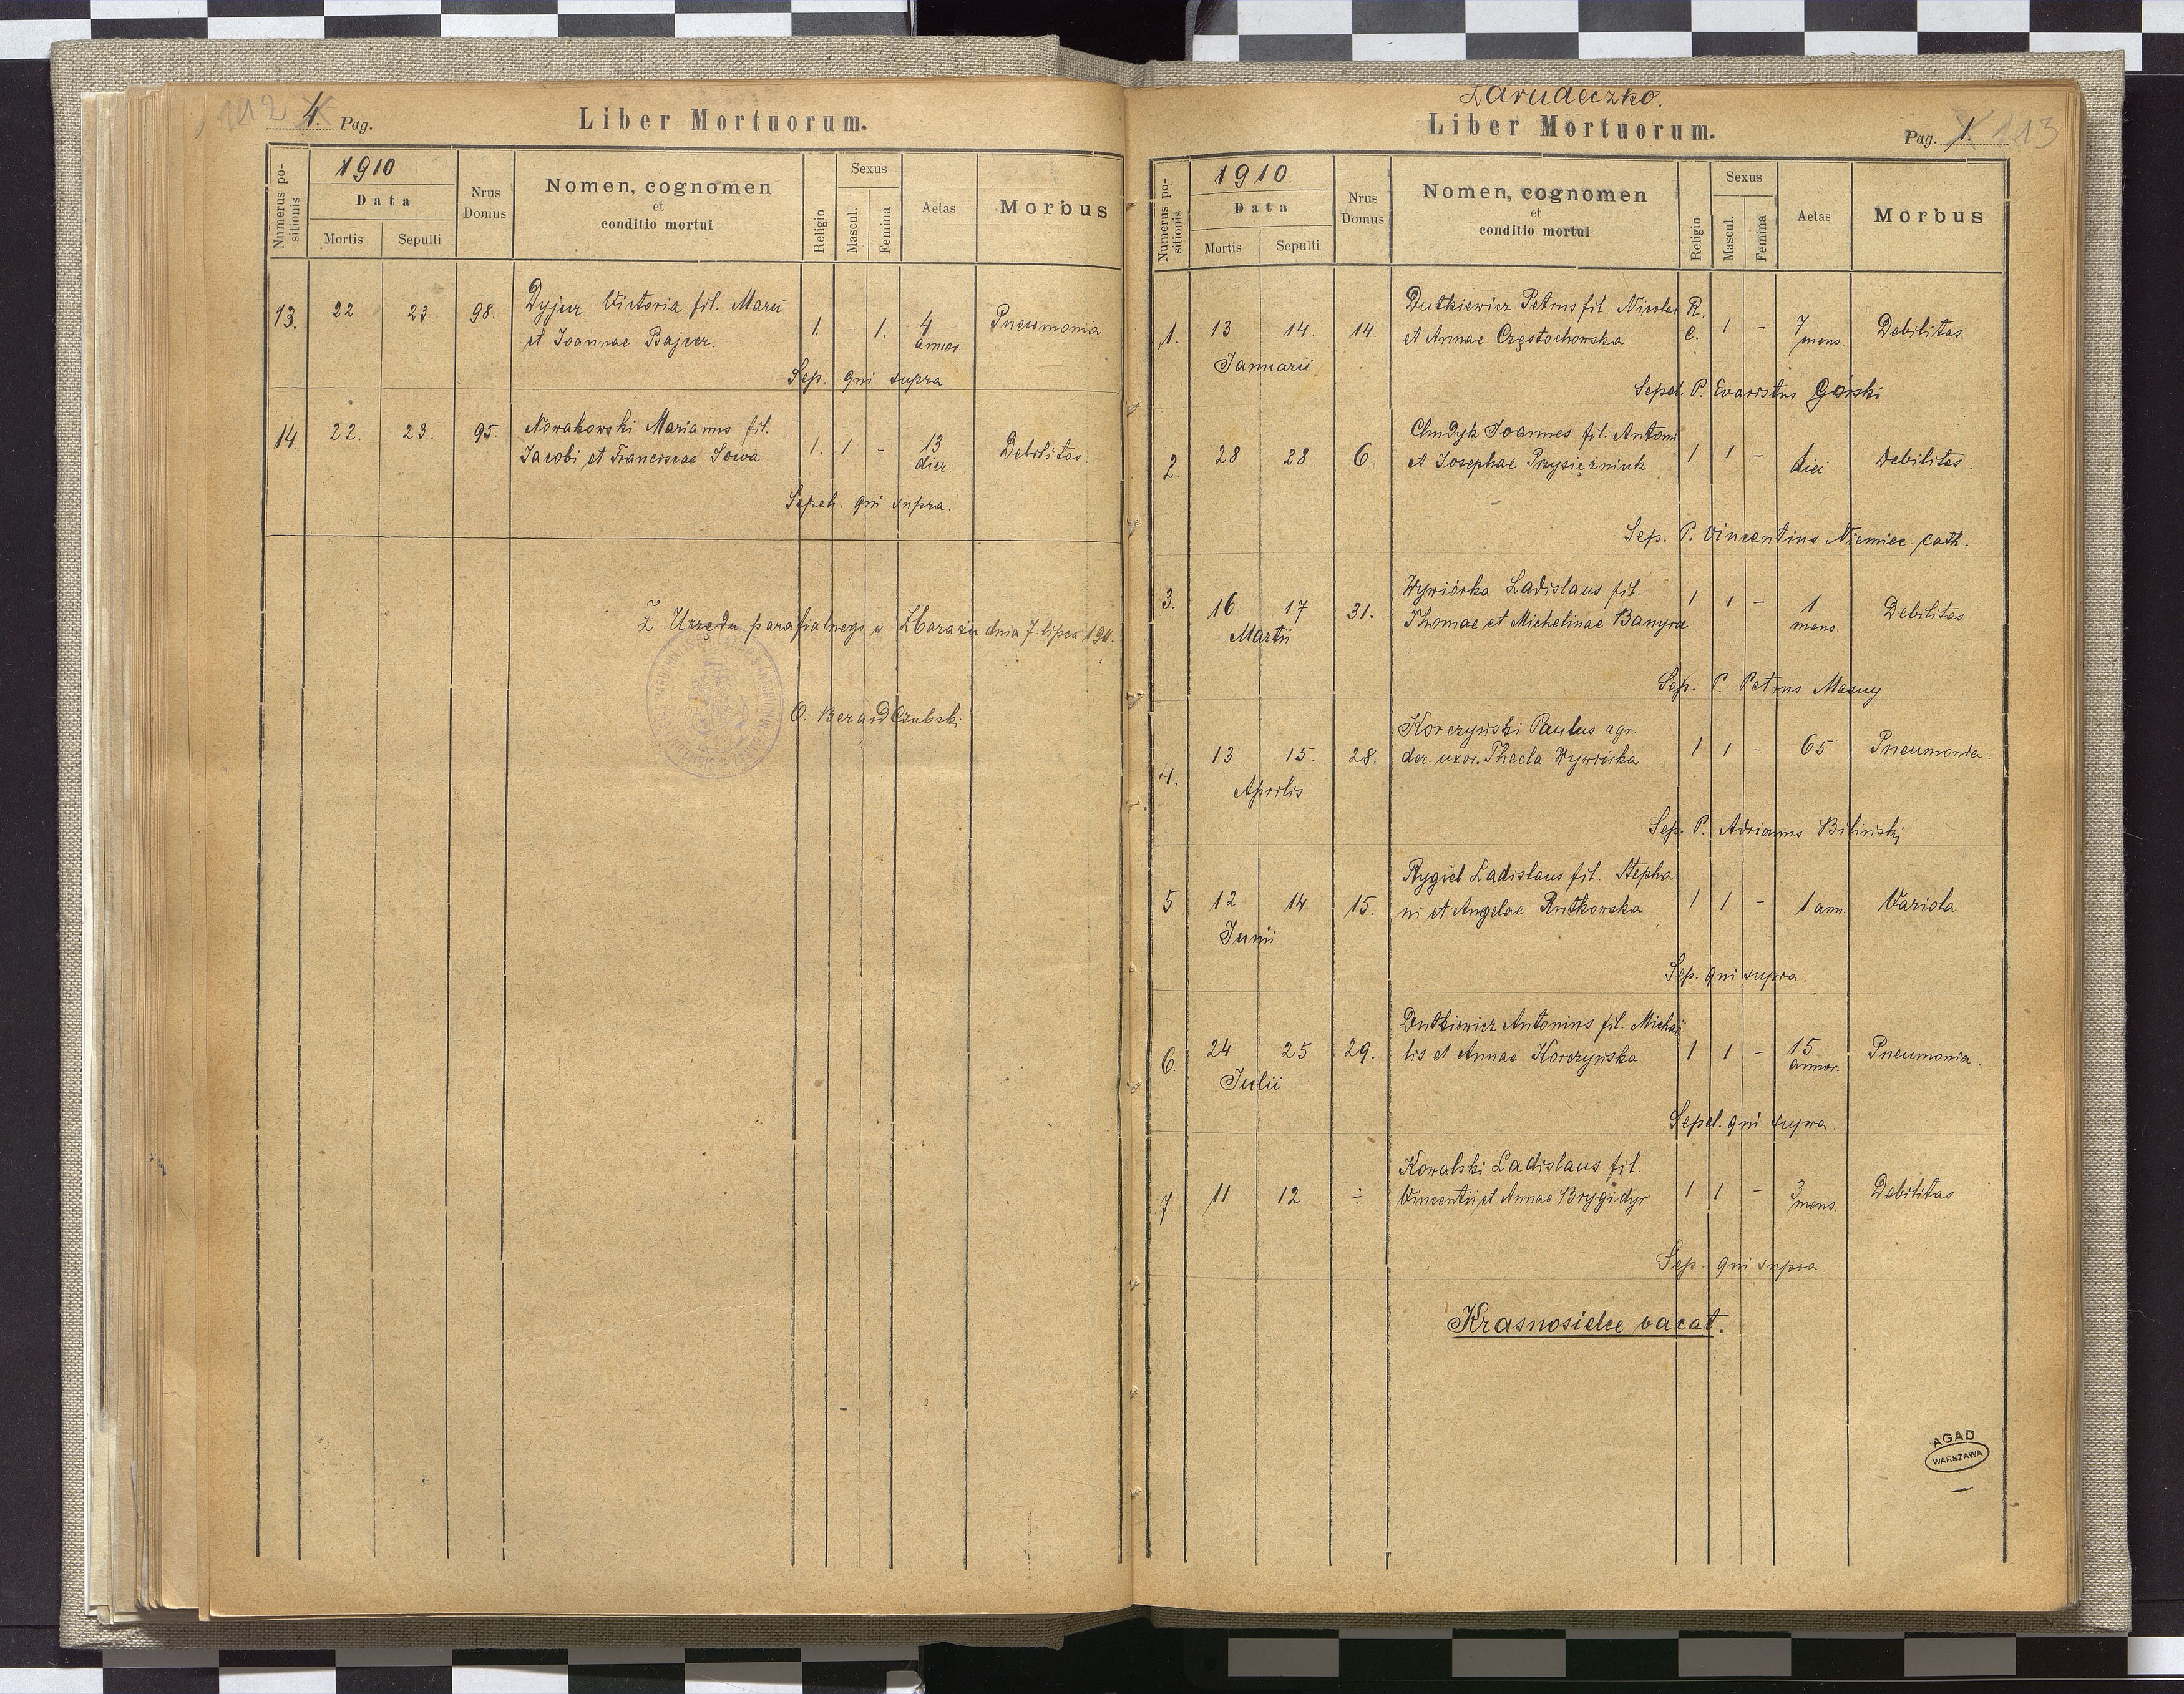 112 4. Pag.
Liber Mortuorum.
Numerus positionis
1910
Data
Mortis
Sepulti
Nrus Domus
Nomen, cognomen
et
conditio mortui
Religio
Sexus
Mascul.
Femina
Aetas
Morbus
13. 22 23 98. Dyjur Victoria fil. Marii 1. - 1. 4 Pneumonia
et Joannae Bajcer. annor.
Sep. qui supra
14 22. 23. 95. Nowakowski Marianus fil. 1. 1 - 13 Debilitas
Jacobi et Franciscae Sowa dier
Sepel. qui supra.
Z Urzędu parafialnego w Zbarażu dnia 7. lipca 1911.
O. Berard Czubski
Zarudeczko.
Liber Mortuorum.
Pag. 1. 113
Numerus positionis
1910.
Data
Mortis
Sepulti
Nrus Domus
Nomen, cognomen
et
conditio mortui
Religio
Sexus
Mascul.
Femina
Aetas
Morbus
1. 13 14. 14. Dutkiewicz Petrus fil. Nicolai R. 1 - 7 Debilitas
Januarii et Annae Częstochowska c. mens.
Sepel. P. Evaristus Górski
2. 28 28 6. Chudyk Joannes fil. Antoni 1 1 - diei Debilitas.
et Josephae Przysiężniuk
Sep. P. Vincentius Niemiec cath.
3. 16 17 31. Wywiórka Ladislaus fil. 1 1 - 1 Debilitas
Martii Thomae et Michelinae Banyra mens.
Sep. P. Petrus Mazuy
4. 13 15. 28. Korczyński Paulus agr. 1 1 - 65 Pneumonia.
Aprilis der. uxor. Thecla Wywiórka
Sep. P. Adrianus Biliński
5 12 14 15. Rygiel Ladislaus fil. Stepha 1 1 - 1 ann. Variola
Junii ni et Angelae Rutkowska
Sep. qui supra.
6. 24 25 29. Dutkiewicz Antonius fil. Michae 1 1 - 15 Pneumonia.
Julii lis et Annae Korczyńska annor.
Sepel. qui supra.
7. 11 12 ÷ Kowalski Ladislaus fil. 1 1 - 3 Debilitas
Vincentii et Annae Brygidyr mens.
Sep. qui supra.
Krasnosielce vacat.
AGAD
WARSZAWA